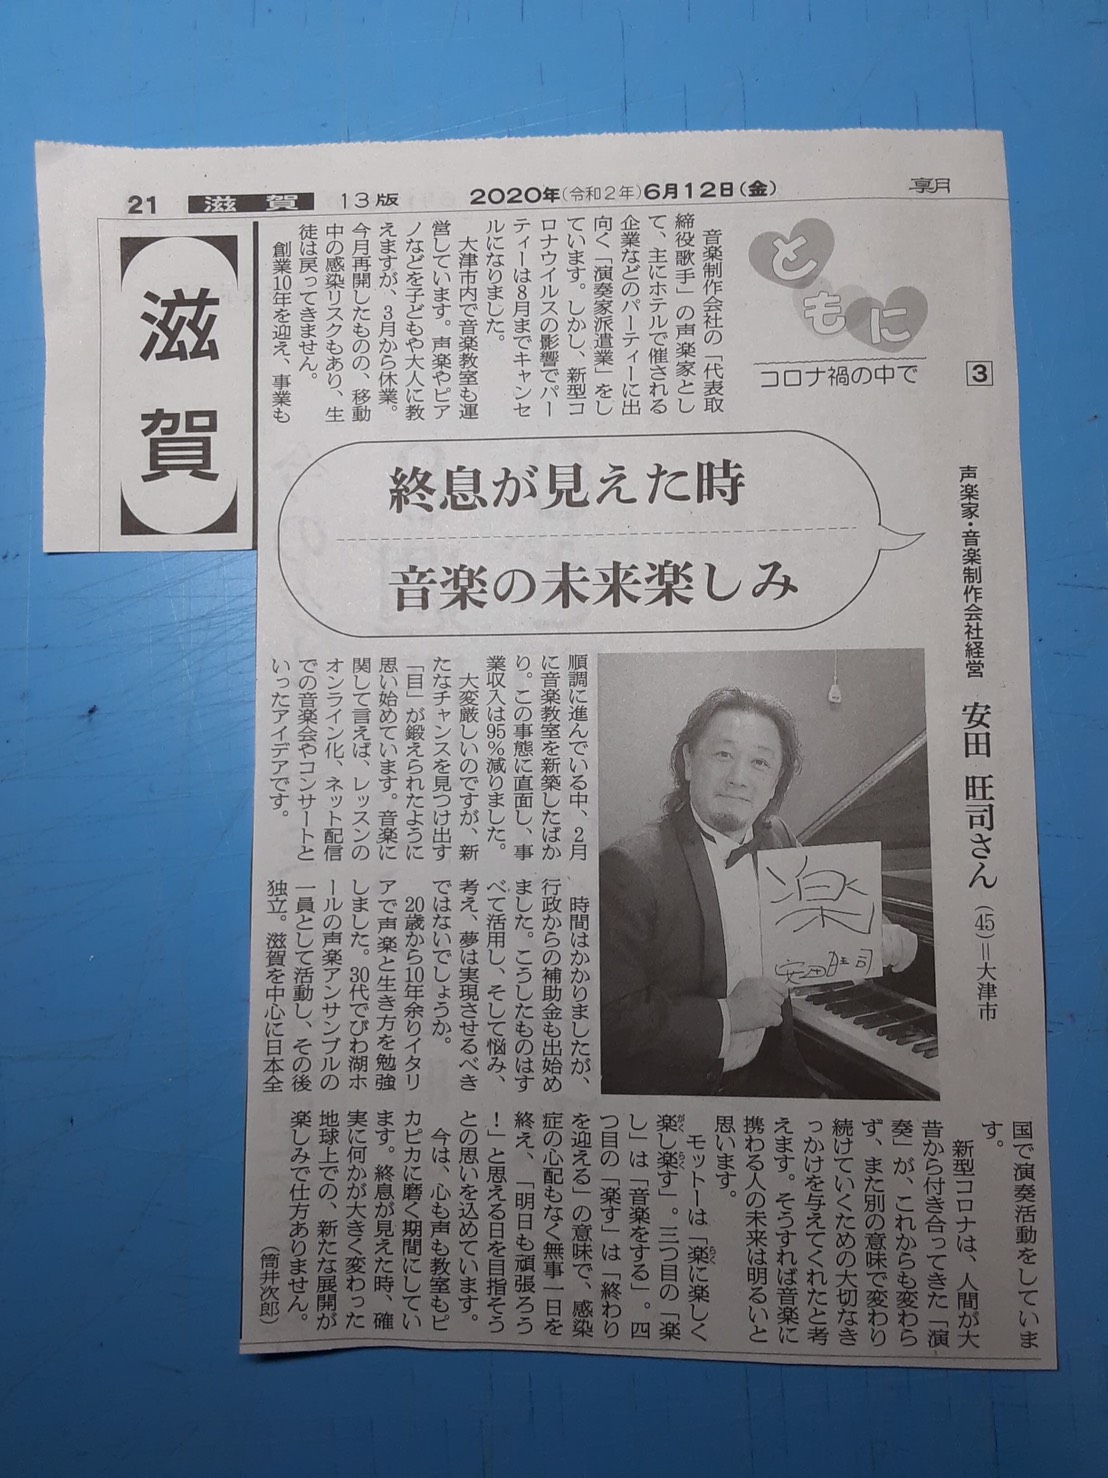 21 滋賀 13版 2020年(令和2年)6月12日(金) 朝
滋賀
ともに
コロナ禍の中で
3
声楽家・音楽制作会社経営 安田 旺司さん(45)=大津市
終息が見えた時
音楽の未来楽しみ
音楽制作会社の「代表取
締役歌手」の声楽家とし
て、主にホテルで催される
企業などのパーティーに出
向く「演奏家派遣業」をし
ています。しかし、新型コ
ロナウイルスの影響でパー
ティーは8月までキャンセ
ルになりました。
大津市内で音楽教室も運
営しています。声楽やピア
ノなどを子どもや大人に教
えますが、3月から休業。
今月再開したものの、移動
中の感染リスクもあり、生
徒は戻ってきません。
創業10年を迎え、事業も
順調に進んでいる中、2月
に音楽教室を新築したばか
り。この事態に直面し、事
業収入は95%減りました。
大変厳しいのですが、新
たなチャンスを見つけ出す
「目」が鍛えられたように
思い始めています。音楽に
関して言えば、レッスンの
オンライン化、ネット配信
での音楽会やコンサートと
いったアイデアです。
時間はかかりましたが、
行政からの補助金も出始め
ました。こうしたものはす
べて活用し、そして悩み、
考え、夢は実現させるべき
ではないでしょうか。
20歳から10年余りイタリ
アで声楽と生き方を勉強
しました。30代でびわ湖ホ
ールの声楽アンサンブルの
一員として活動し、その後
独立。滋賀を中心に日本全
国で演奏活動をしていま
す。
新型コロナは、人間が大
昔から付き合ってきた「演
奏」が、これからも変わら
ず、また別の意味で変わり
続けていくための大切なき
っかけを与えてくれたと考
えます。そうすれば音楽に
携わる人の未来は明るいと
思います。
モットーは「楽に楽しく
楽し楽す」。三つ目の「楽
し」は「音楽をする」。四
つ目の「楽す」は「終わり
を迎える」の意味で、感染
症の心配もなく無事一日を
終え、「明日も頑張ろう
!」と思える日を目指そう
との思いを込めています。
今は、心も声も教室もピ
カピカに磨く期間にしてい
ます。終息が見えた時、確
実に何かが大きく変わった
地球上での、新たな展開が
楽しみで仕方ありません。
(筒井次郎)
楽
安田旺司